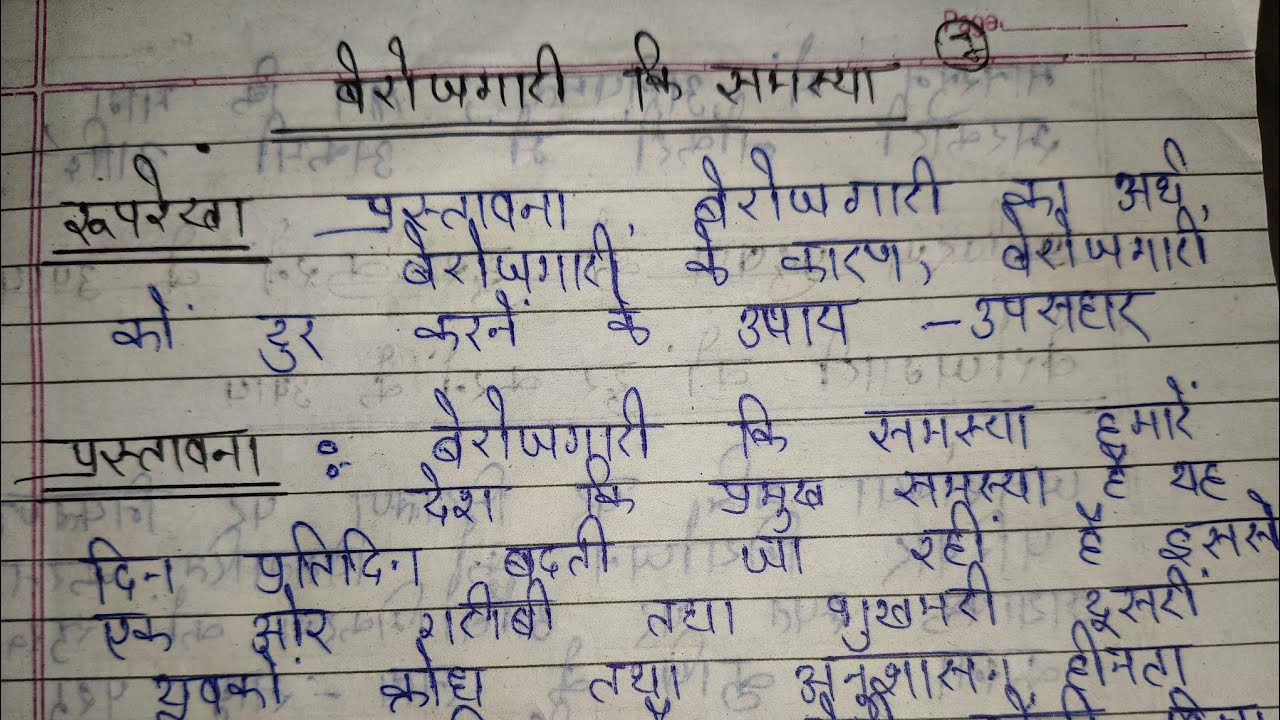 Page.
बेरोजगारी कि समस्या
रूपरेखा प्रस्तावना, बेरोजगारी का अर्थ,
बेरोजगारी के कारण, बेरोजगारी
कों दुर करनें के उपाय – उपसहार
प्रस्तावना : बेरोजगारी कि समस्या हमारें
देश कि प्रमुख समस्या है यह
दिन प्रतिदिन बढती जा रही है इससे
एक ओर गरीबी तथा भुखमरी दूसरी
युवको क्रोध तथा अनुशासन हीनता